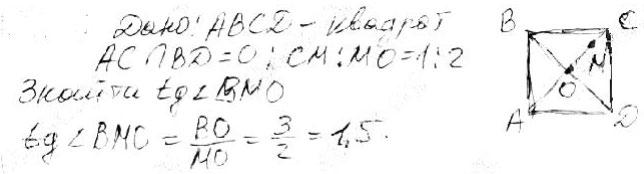 Дано: ABCD - квадрат
AC ∩ BD = O; CM:MO=1:2
Знайти tg∠BMO
tg∠BMO = BO/MO = 3/2 = 1,5.
B C
M
O
A D